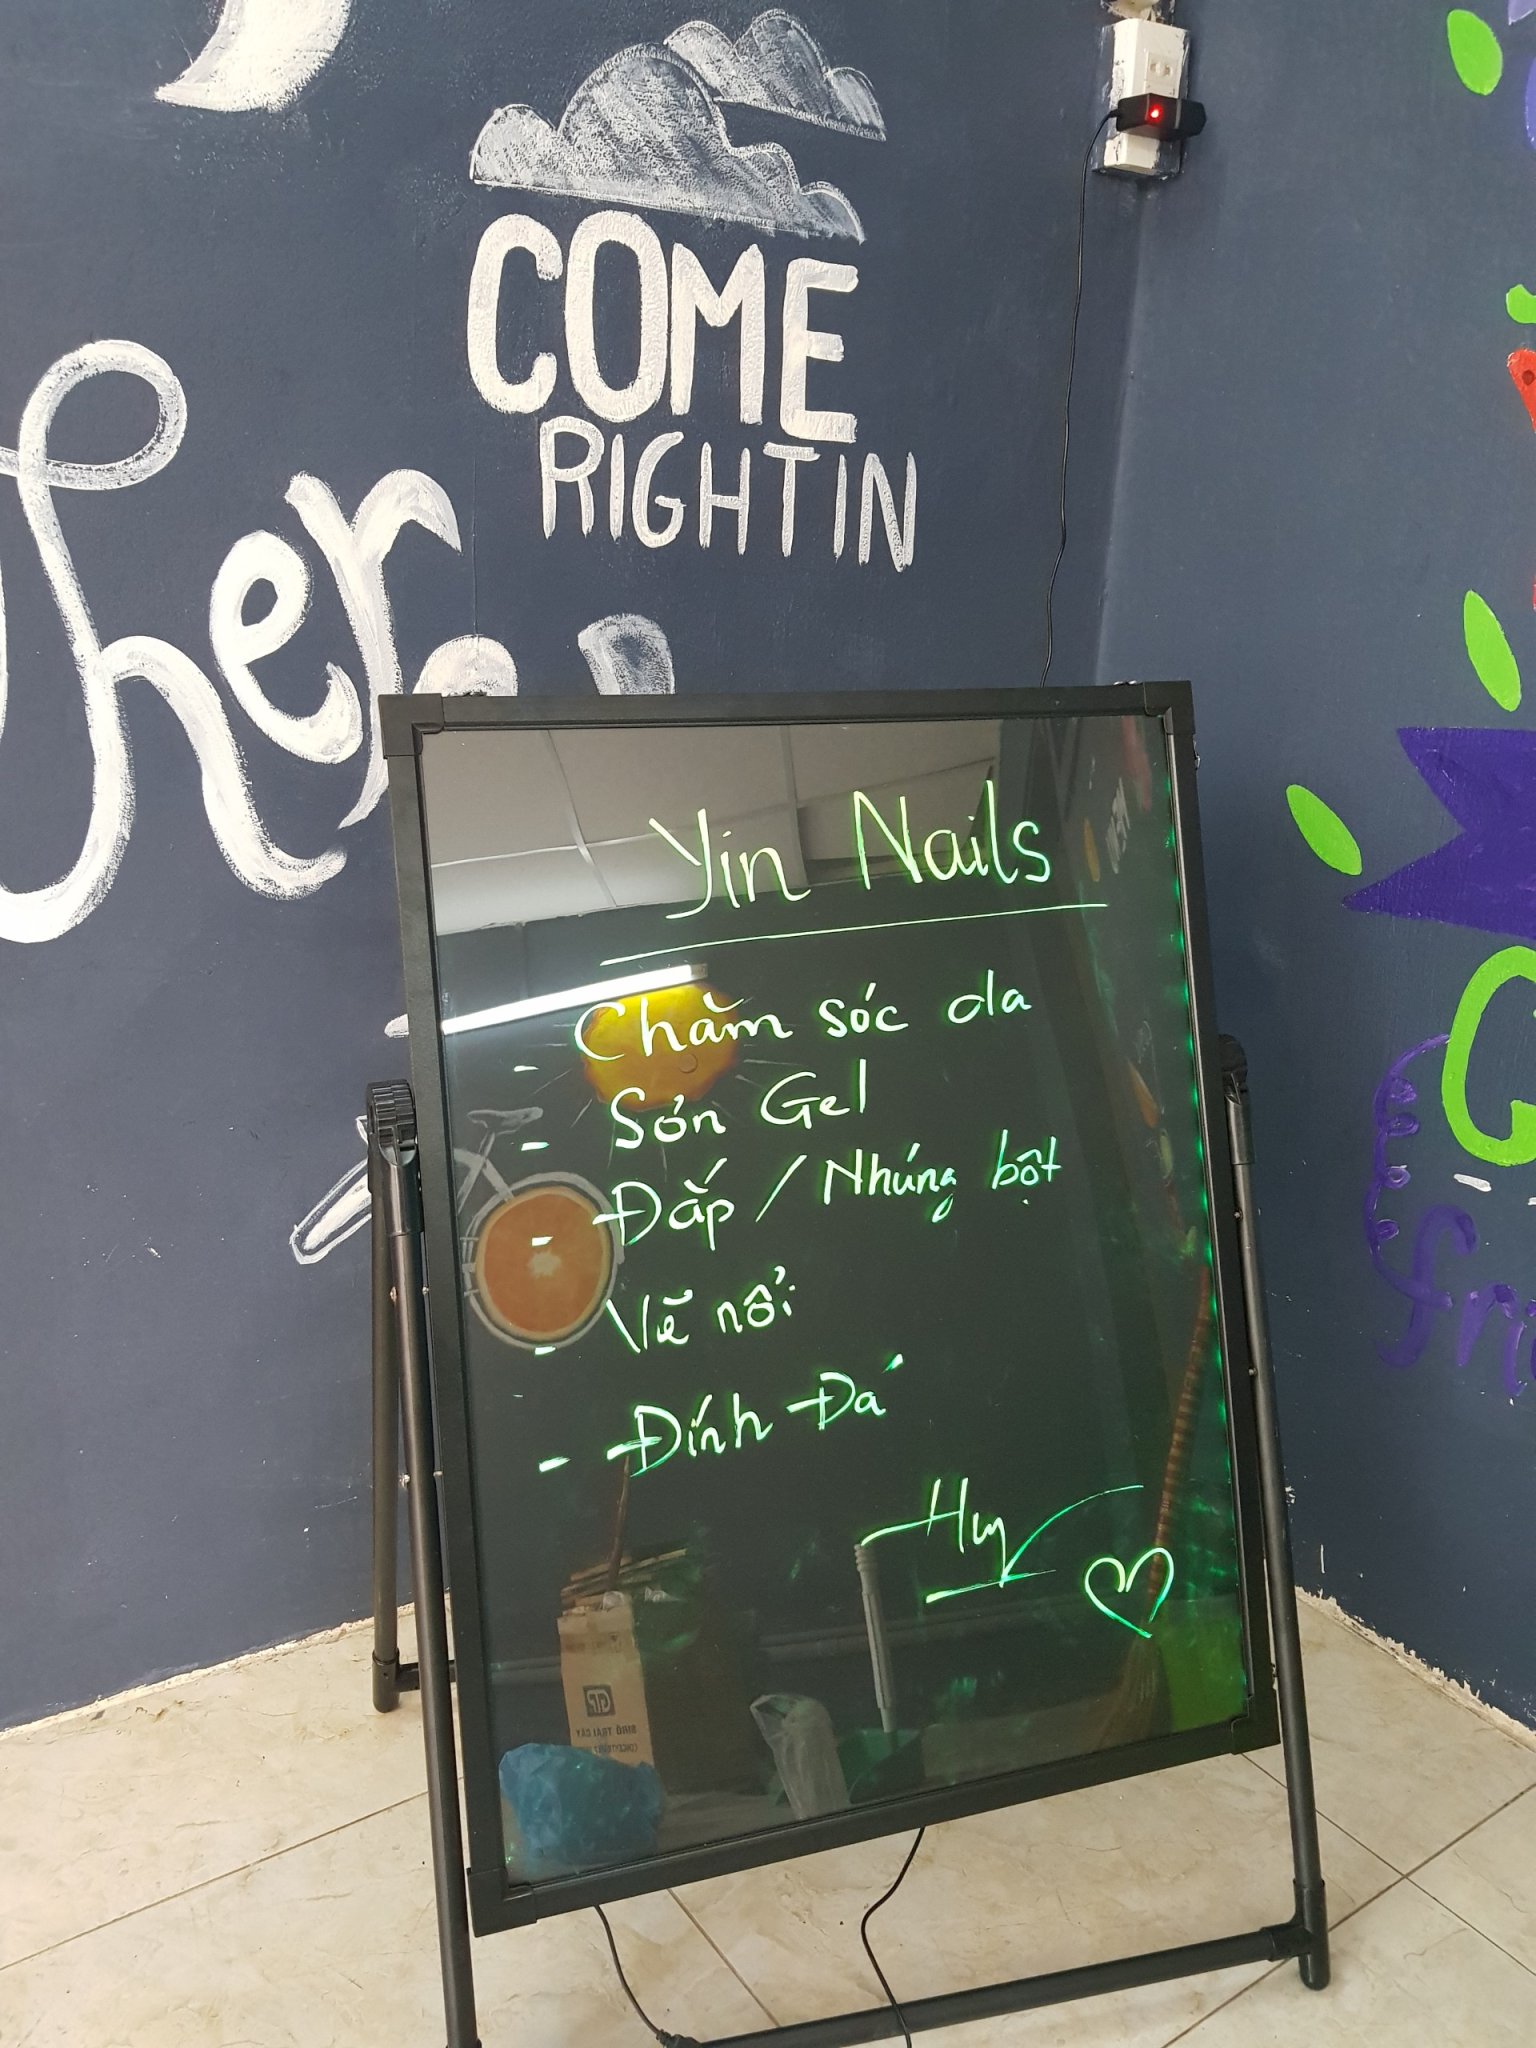 COME
RIGHT IN
Yin Nails
- Chăm sóc da
- Sơn Gel
- Đắp / Nhúng bột
- Vẽ nổi
- Đính Đá
Huy